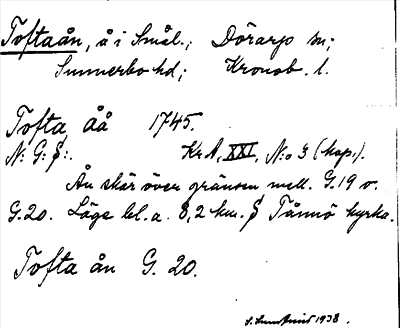 Toftaån, å i Smål.; Dörarp sn;
Sunnerbo hd; Kronob. l.
Tofta åå 1745.
N: G: §:. KrA, XXI, N:o 3 (kop.).
Ån skär över gränsen mell. G.19 o.
G.20. Läge bl. a. 8,2 km. § Tånnö kyrka.
Tofta ån G. 20.
1938.